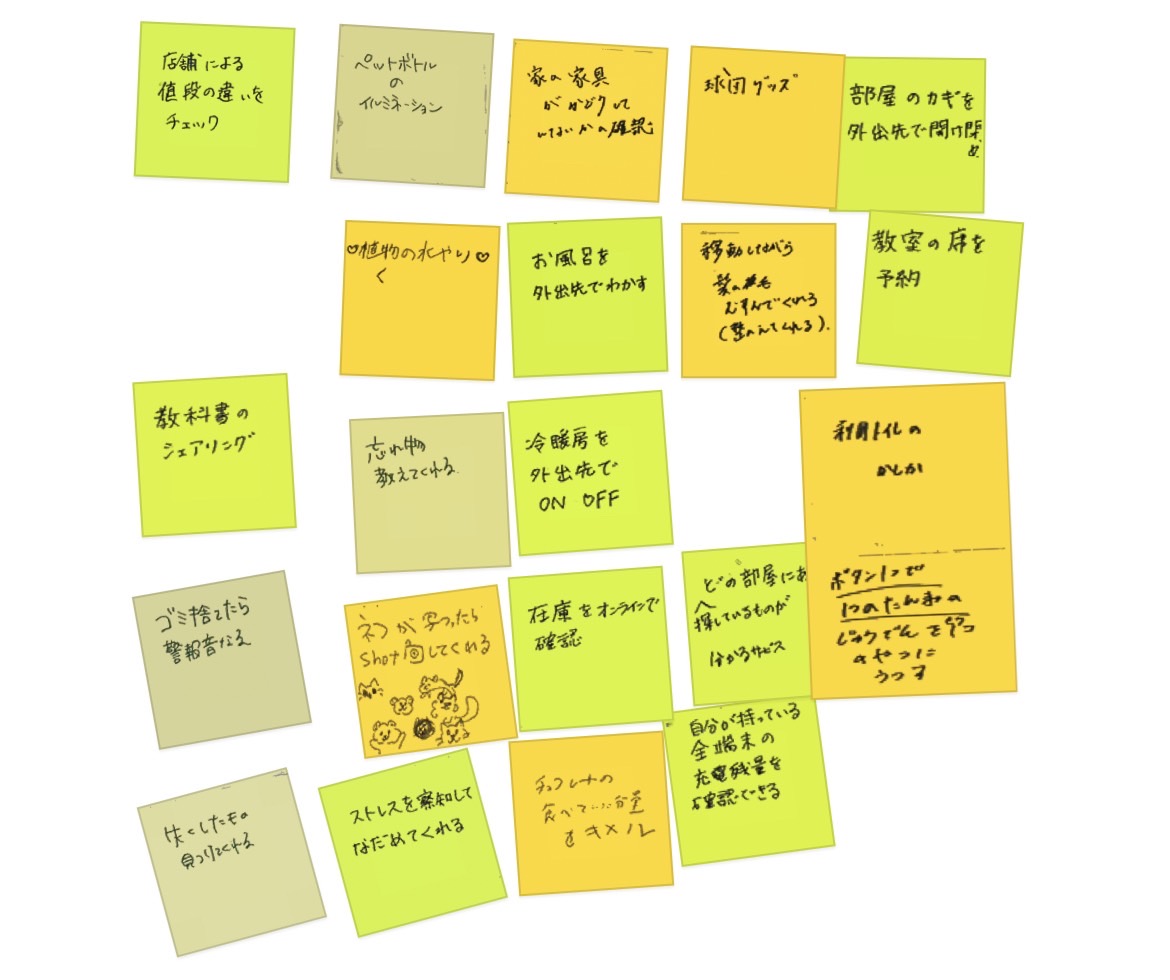 店舗による
値段の違いを
チェック
ペットボトル
の
イルミネーション
家の家具
がかどうして
いないかの確認
球団グッズ
部屋のカギを
外出先で開け閉
め
♡植物の水やり♡
く
お風呂を
外出先でわかす
移動しながら
髪の毛
むすんでくれる
(整のえてくれる).
教室の席を
予約
教科書の
シェアリング
忘れ物
教えてくれる
冷暖房を
外出先で
ON OFF
利用トイレの
かしか
ボタン1つで
1つのたんまつの
じゅうでんを
やつに
うつす
ゴミ捨てたら
警報音なる
ネコが写ったら
Shotしてくれる
在庫をオンラインで
確認
どの部屋にあ
探しているものが
分かるサービス
失くしたもの
見つけてくれる
ストレスを察知して
なだめてくれる
チョコレートの
食べていい分量
をキメル
自分が持っている
全端末の
充電残量を
確認できる